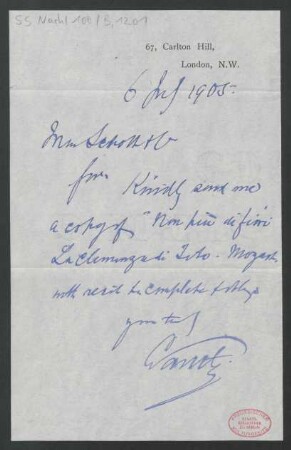 SS Nachl 109 / B, 1201
67, Carlton Hill,
London, N.W.
6 July 1905.
Mess Schott & Co
Kindly send me
a copy of "Non più di fiori
La Clemenza di Tito - Mozart
with recit to complete & oblige
yours truly